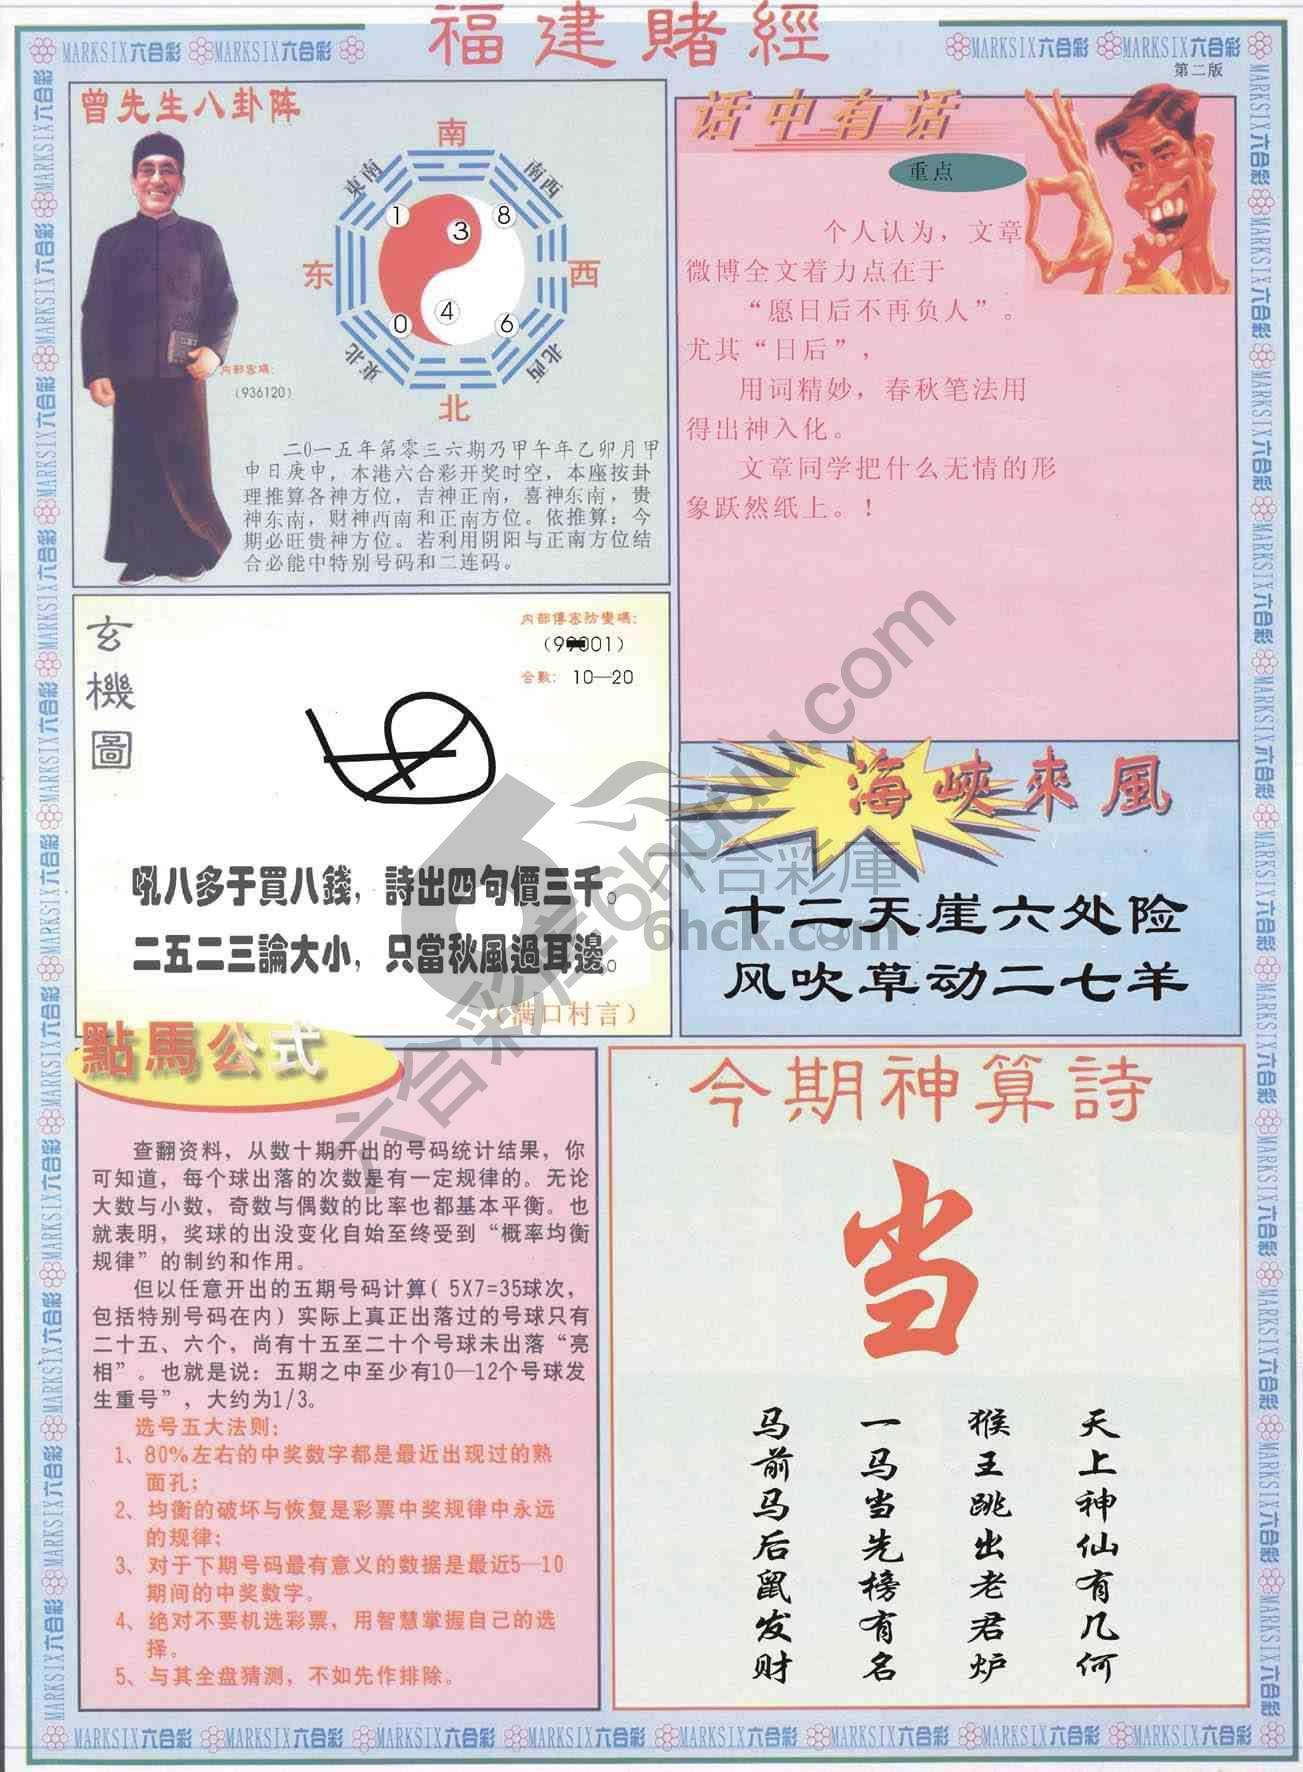 福建賭經
MARKSIX六合彩 MARKSIX六合彩
MARKSIX六合彩 MARKSIX六合彩
第二版
曾先生八卦阵
南
東南
南西
东
西
東北
北西
北
1
3
8
0
4
6
内部密碼:
(936120)
二0一五年第零三六期乃甲午年乙卯月甲
申日庚申，本港六合彩开奖时空，本座按卦
理推算各神方位，吉神正南，喜神东南，贵
神东南，财神西南和正南方位。依推算：今
期必旺贵神方位。若利用阴阳与正南方位结
合必能中特别号码和二连码。
话中有话
重点
个人认为，文章
微博全文着力点在于
“愿日后不再负人”。
尤其“日后”，
用词精妙，春秋笔法用
得出神入化。
文章同学把什么无情的形
象跃然纸上。!
玄機圖
内部傳密防變碼:
合數: 10—20
吼八多于買八錢，詩出四句價三千。
二五二三論大小，只當秋風過耳邊。
(满口村言)
海峽來風
十二天崖六处险
风吹草动二七羊
點馬公式
查翻资料，从数十期开出的号码统计结果，你
可知道，每个球出落的次数是有一定规律的。无论
大数与小数，奇数与偶数的比率也都基本平衡。也
就表明，奖球的出没变化自始至终受到“概率均衡
规律”的制约和作用。
但以任意开出的五期号码计算( 5X7=35球次，
包括特别号码在内）实际上真正出落过的号球只有
二十五、六个，尚有十五至二十个号球未出落“亮
相”。也就是说：五期之中至少有10—12个号球发
生重号”，大约为1/3。
选号五大法则:
1、80%左右的中奖数字都是最近出现过的熟
面孔;
2、均衡的破坏与恢复是彩票中奖规律中永远
的规律;
3、对于下期号码最有意义的数据是最近5—10
期间的中奖数字。
4、绝对不要机选彩票，用智慧掌握自己的选
择。
5、与其全盘猜测，不如先作排除。
今期神算詩
当
天上神仙有几何
猴王跳出老君炉
一马当先榜有名
马前马后鼠发财
MARKSIX六合彩 MARKSIX六合彩 MARKSIX六合彩 MARKSIX六合彩 MARKSIX六合彩 MARKSIX六合彩 MARKSIX六合彩 MARKSIX六合彩
六合彩库6hcuu.com
六合彩庫
6hck.com